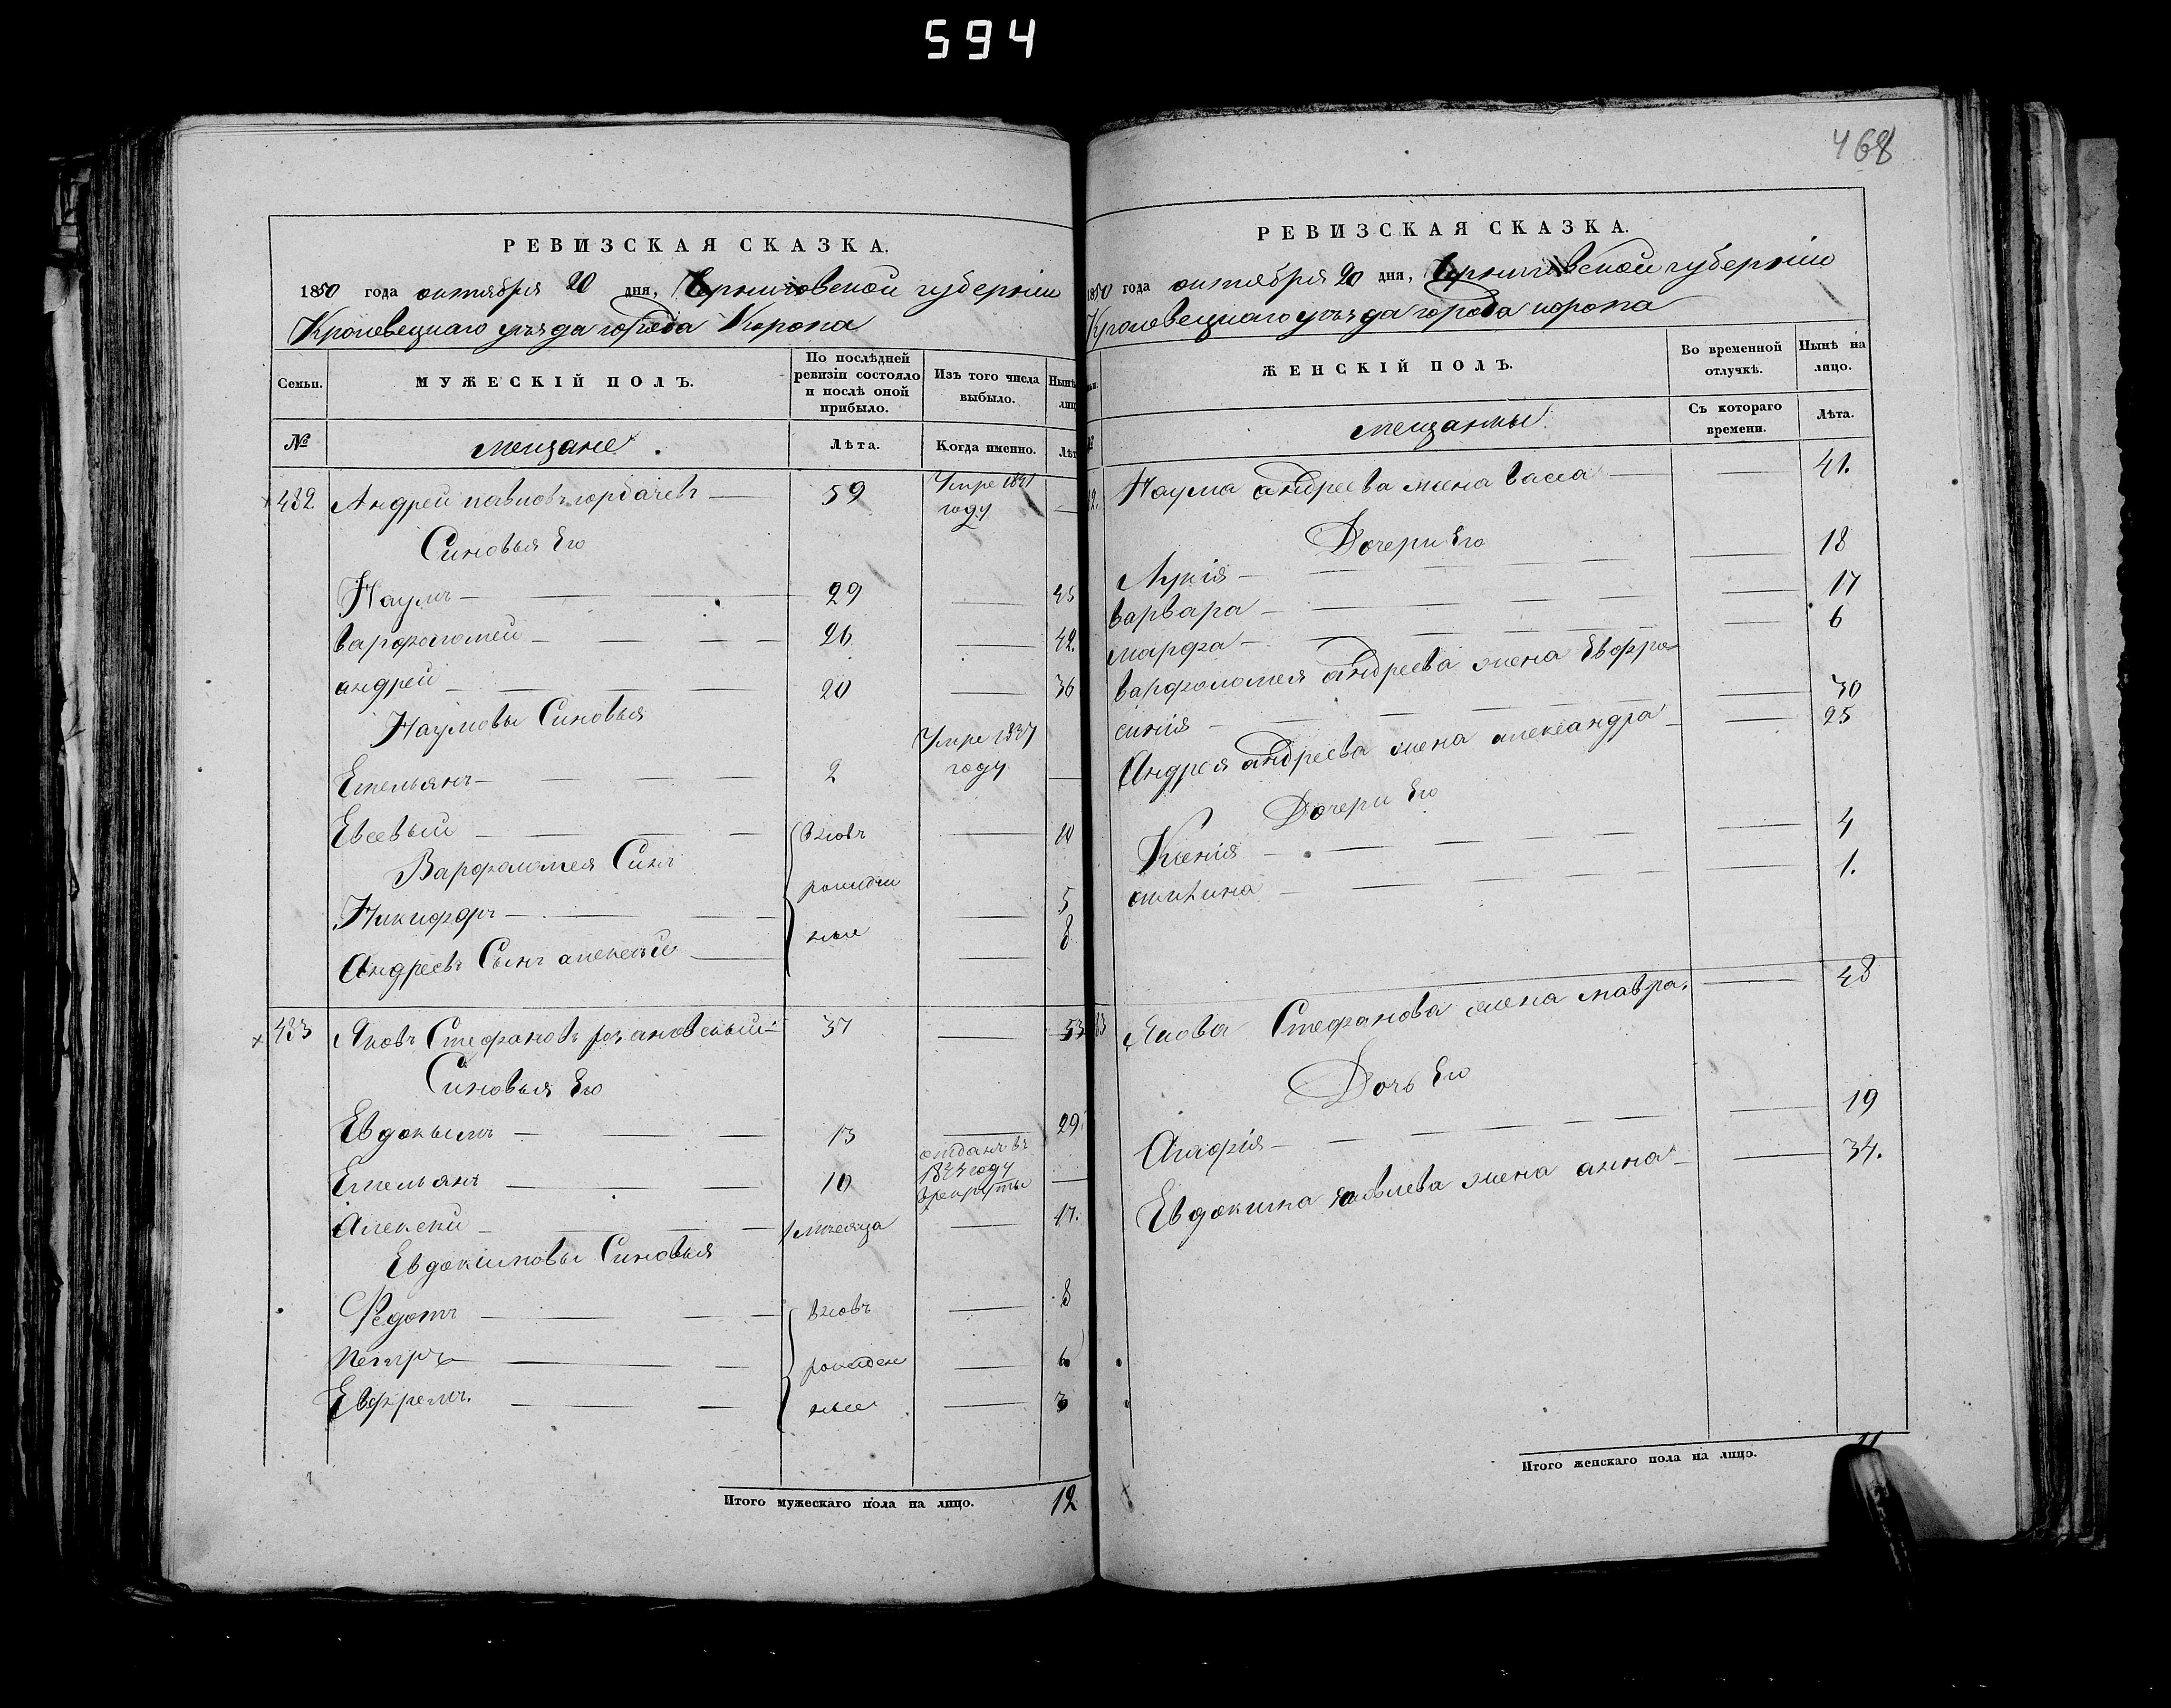 594
468
РЕВИЗСКАЯ СКАЗКА.
1850 года октября 20 дня, Черниговской губерніи
Кролевецкаго уезда города Коропа
Семьи. МУЖЕСКІЙ ПОЛЪ. По послѣдней ревизіи состояло и послѣ оной прибыло. Изъ того числа выбыло. Нынѣ
№ мещане. Лѣта. Когда именно. Лѣт
432. Андрей павловъ горбачевъ — 59 Умре 1831 году —
Синовья Его
Наумъ — 29 — 45
варфоломей — 26 — 42.
андрей — 20 — 36
Наумовы Синовья
Емельянъ — 2 Умре 1837 году —
Евсевый — вновь — 10
Варфоломея Синъ
рожден
Никифоръ — — 5
ные 8
Андреевъ Сынъ алексей — —
433 Яковъ Стефановъ — 37 — 53
Синовья Его
Евдокымъ — 13 — 29.
Емельянъ — 10 отданъ въ 1844 году в рекруты —
Алексей — 1/ месяца — 17.
Евдокимовы Синовья
Федотъ — вновь — 8
петръ — рожден — 6
Евфремъ. — ные — 3
Итого мужескаго пола на лицо. 12
РЕВИЗСКАЯ СКАЗКА.
1850 года октября 20 дня, Черниговской губерніи
Кролевецкаго уезда города коропа
ЖЕНСКІЙ ПОЛЪ. Во временной отлучкѣ. Нынѣ на лицо.
мещанкы. Съ котораго времени. Лѣта.
Наума андреева жена васса — — 41.
Дочери Его
Лукія — — 18
варвара — — 17
марфа — — 6
варфоломея андреева жена Евфро-
синія — — 30
Андрея андреева жена александра — — 25
Дочери Его
Ксенія — — 4
акилина — — 1.
Якова Стефанова жена мавра. — 48
Дочь Его
Гликерія — — 19
Евдокима яковлева жена анна — — 34.
Итого женскаго пола на лицо. 11